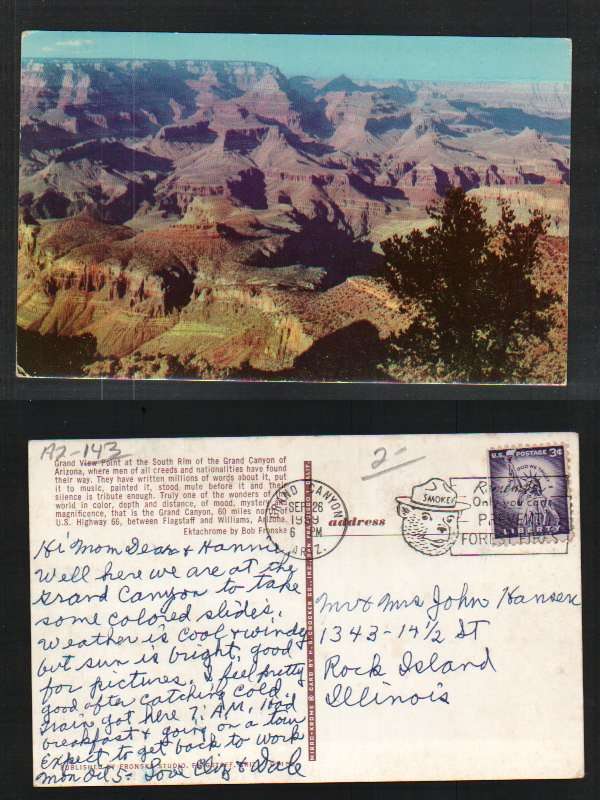 A2-143
2-
Grand View Point at the South Rim of the Grand Canyon of
Arizona, where men of all creeds and nationalities have found
their way. They have written millions of words about it, put
it to music, painted it, stood mute before it and their
silence is tribute enough. Truly one of the wonders of the
world in color, depth and distance, of mood, mystery
magnificence, that is the Grand Canyon, 60 miles north
U.S. Highway 66, between Flagstaff and Williams, Arizona.
Ektachrome by Bob Fronske
GRAND CANYON
SEP 26
1959
6 PM
ARIZ.
address
SMOKEY
Only you can
PREVENT
FOREST FIRES
U.S. POSTAGE 3¢
IN GOD WE TRUST
LIBERTY
Hi Mom Dear & Hannie
Well here we are at the
Grand Canyon to take
some colored slides.
Weather is cool & windy
but sun is bright, good
for pictures. I feel pretty
good after catching cold.
Train got here 7: A.M. Had
breakfast & going on a tour
Expect to get back to work
Mon Oct 5- Love & Dale
Mr & Mrs John Hansen
1343-14 1/2 St
Rock Island
Illinois
MIRRO-KROME ® CARD BY H. S. CROCKER CO., INC.
PUBLISHED BY FRONSKE STUDIO, FLAGSTAFF,